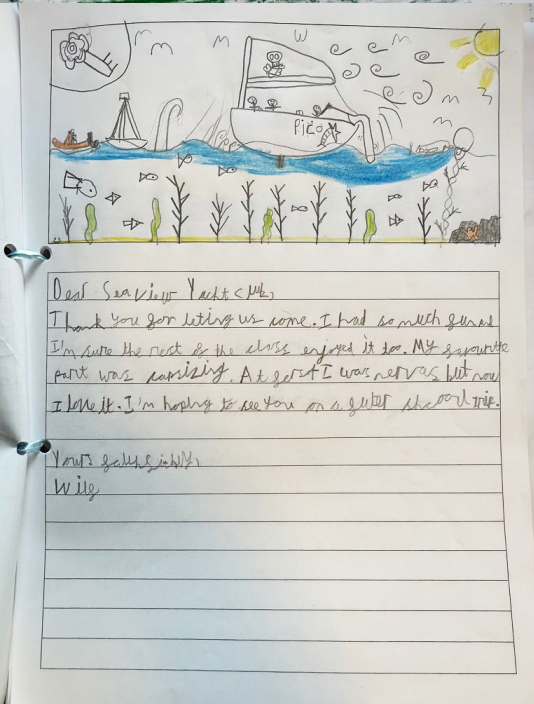 Pico
Dear Seaview Yacht Club,
Thank you for leting us come. I had so much fun and
I'm sure the rest of the class enjoyed it too. My favourite
part was capsizing. At ferst I was nervas but now
I love it. I'm hoping to see you on a futer shcool trip.
Yours
Wilf